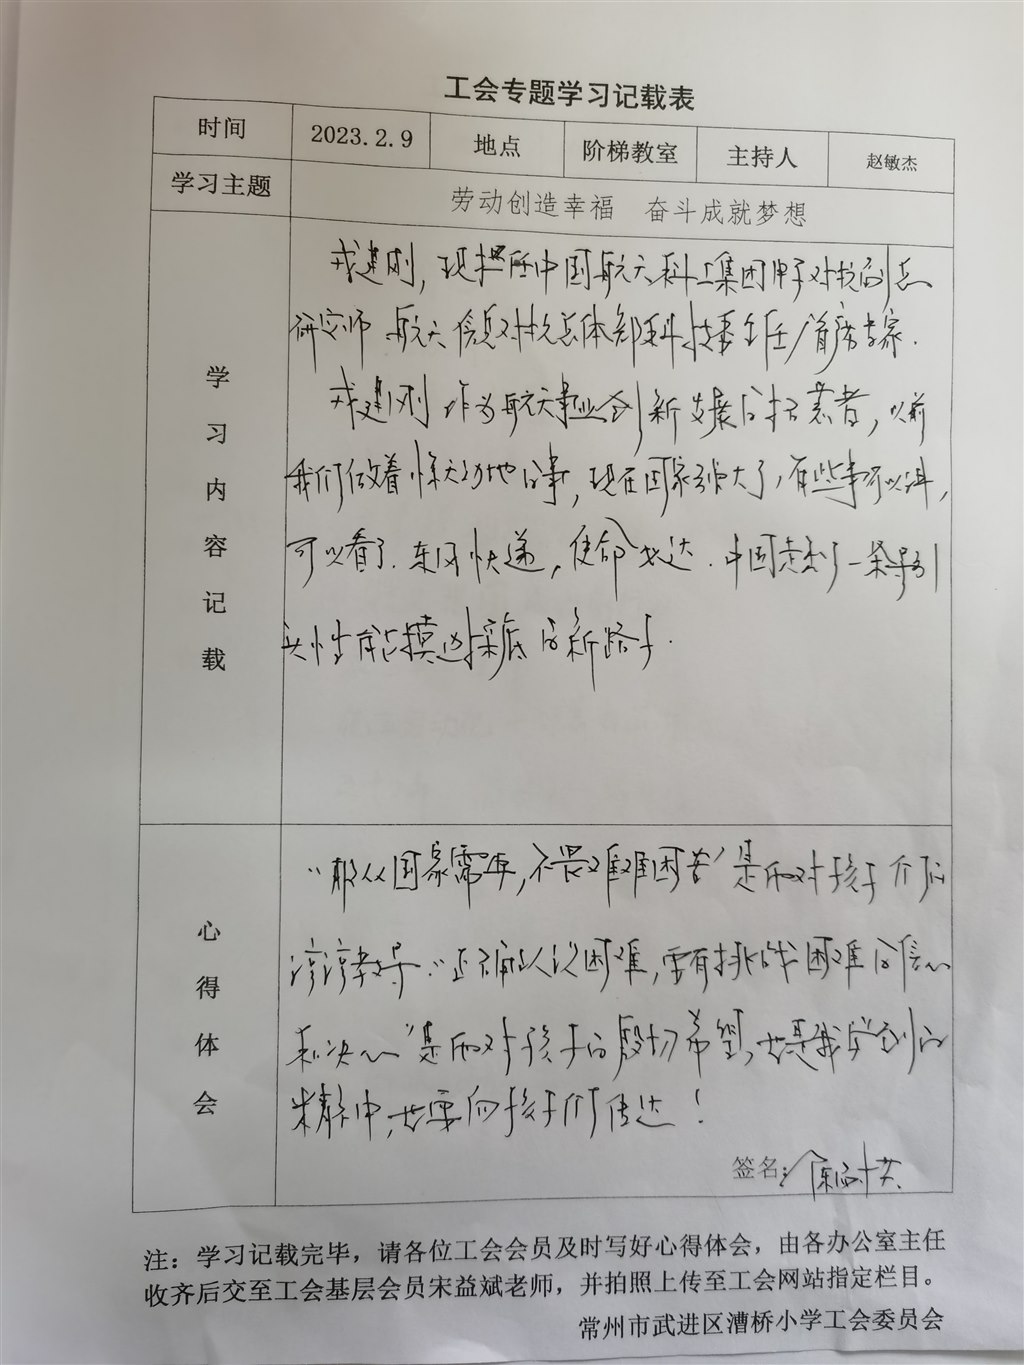 工会专题学习记载表
时间 2023.2.9 地点 阶梯教室 主持人 赵敏杰
学习主题 劳动创造幸福 奋斗成就梦想
学习内容记载
戎建刚,现担任中国航天科工集团电子对抗副总
研究师 航天信息对抗总体部科技委主任/首席专家.
戎建刚作为航天事业创新发展的探索者,以前
我们做着惊天动地的事,现在国家强大了,有些事可以讲,
可以看了.东风快递,使命必达.中国走出了一条导引
头性能摸边探底的新路子.
心得体会
“服从国家需要,不畏艰难困苦”是对孩子们的
谆谆教导.“正确认识困难,要有挑战困难的信心
和决心”是对孩子的殷切希望,也是我学到的
精神,也要向孩子们传达!
签名:
注:学习记载完毕,请各位工会会员及时写好心得体会,由各办公室主任
收齐后交至工会基层会员宋益斌老师,并拍照上传至工会网站指定栏目。
常州市武进区漕桥小学工会委员会